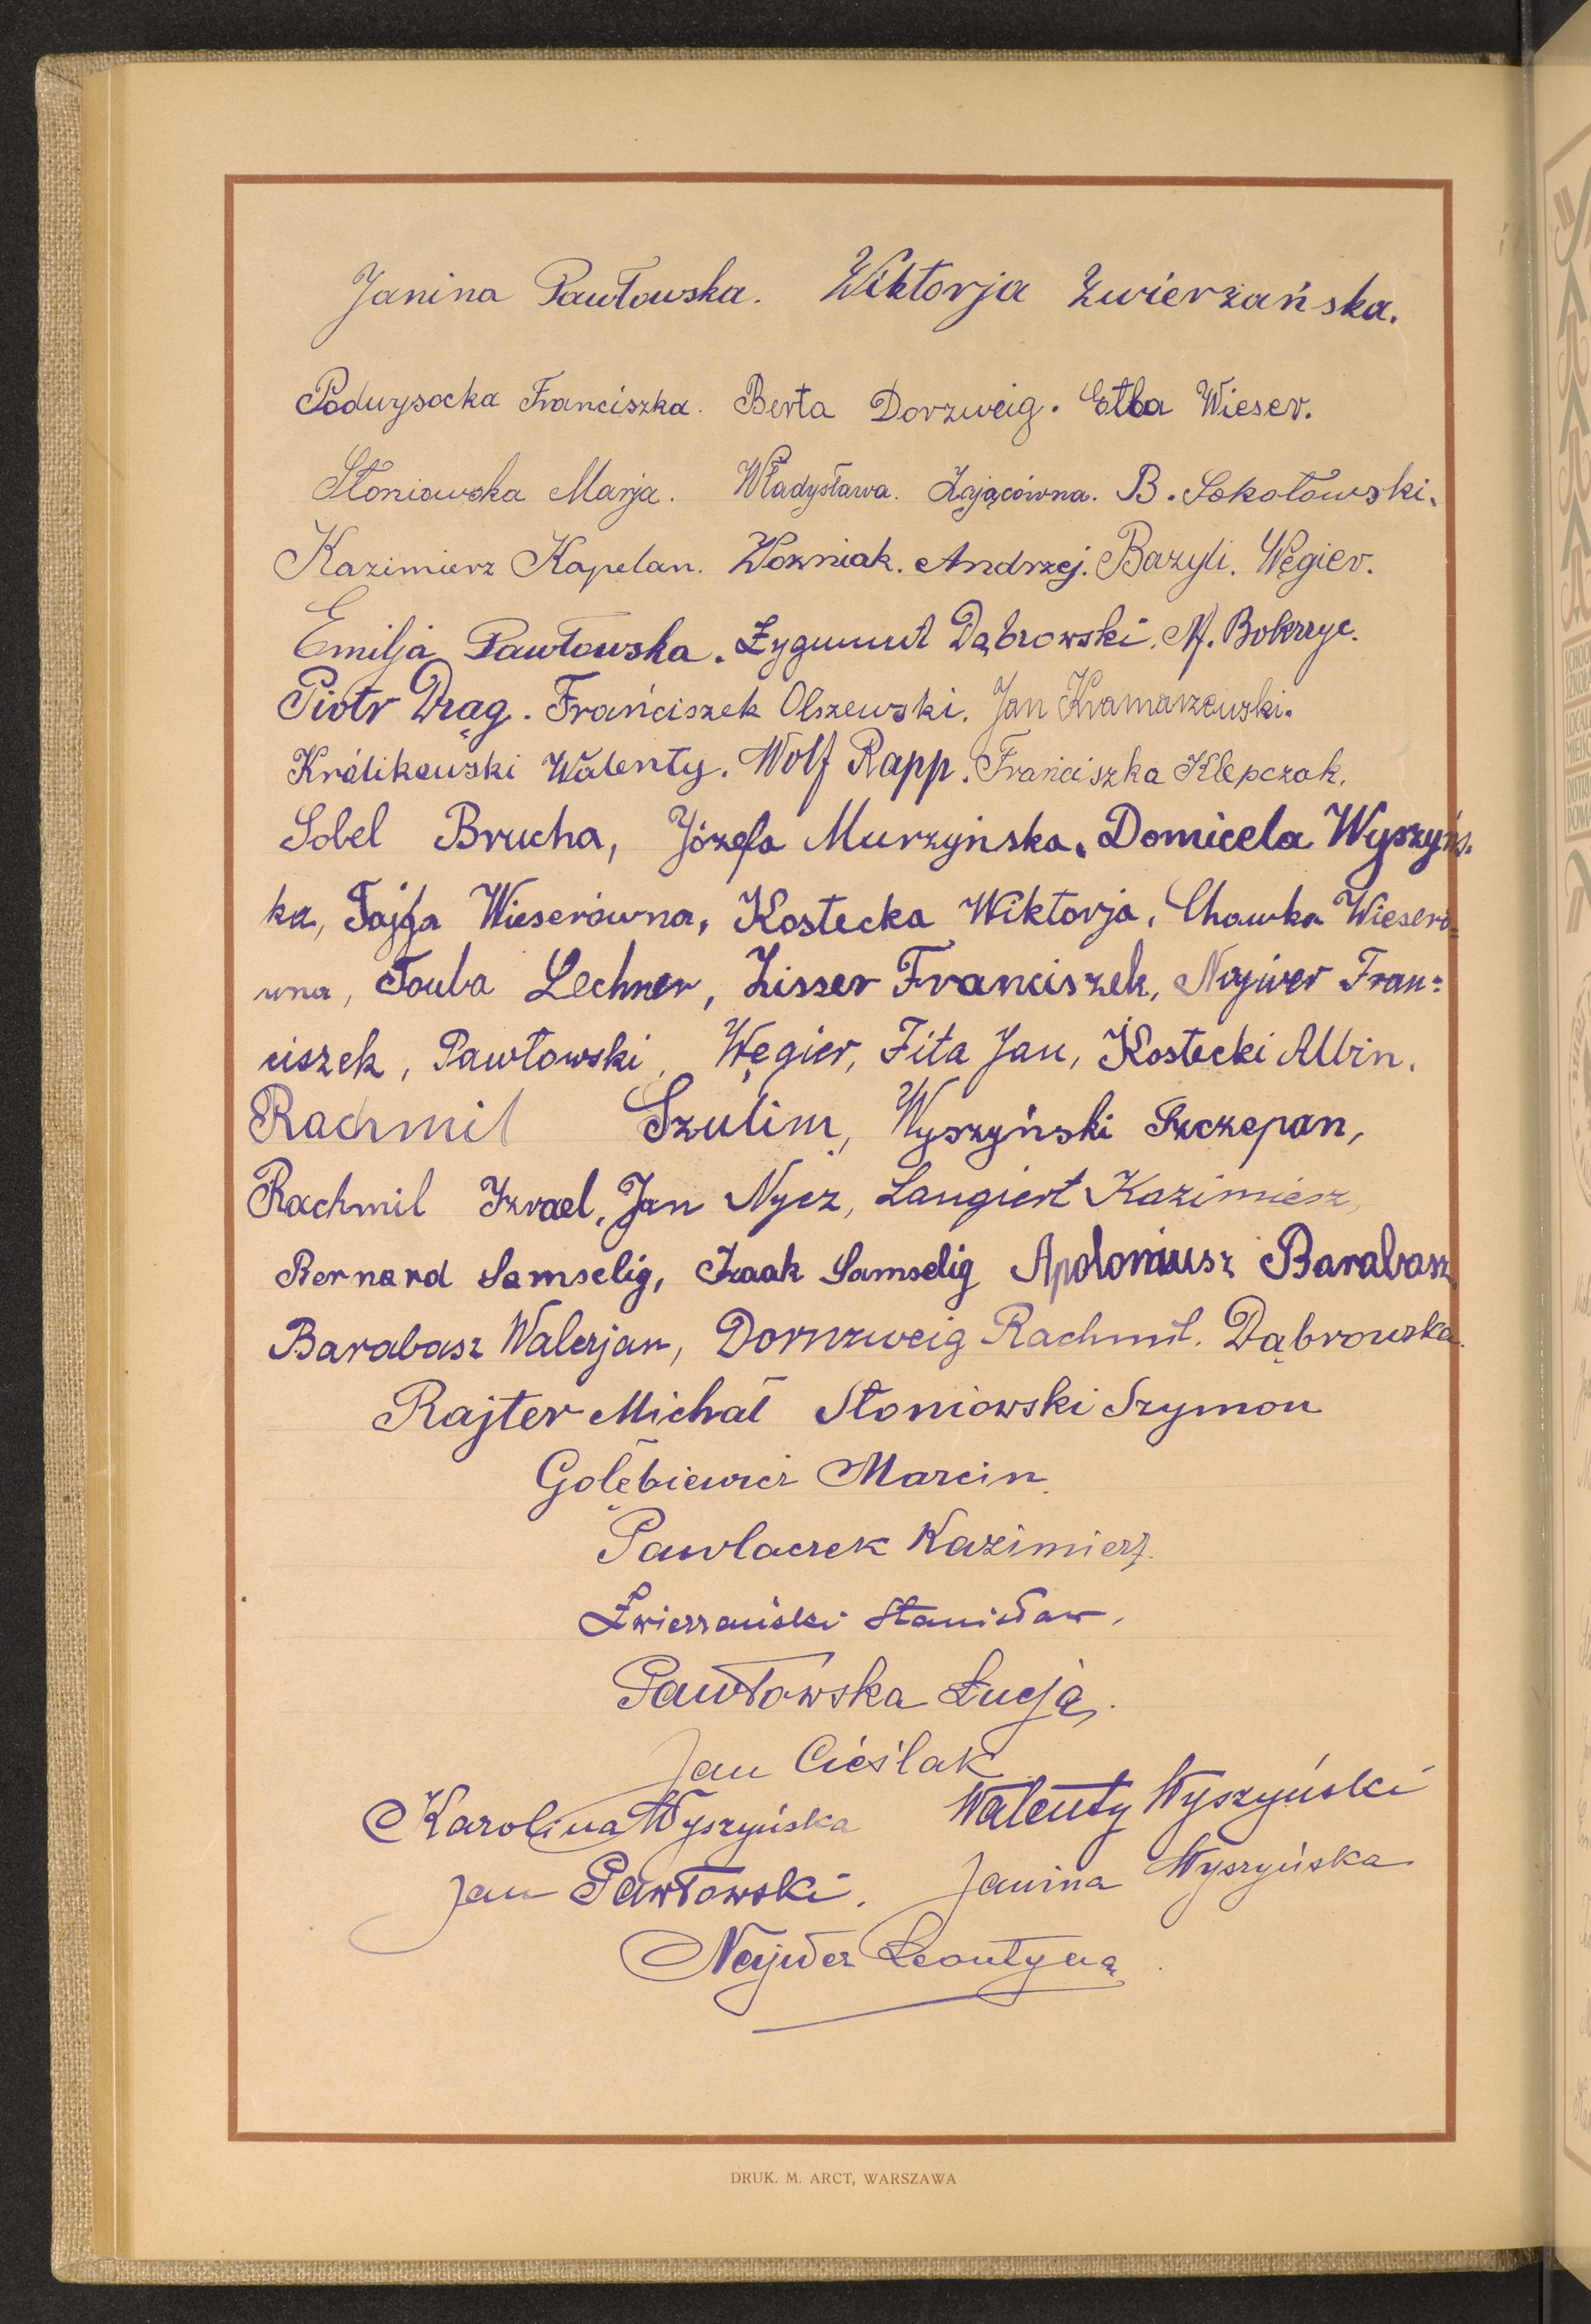 Janina Pawłowska. Wiktorja Zwierzańska.
Podwysocka Franciszka. Berta Dorzweig. Etla Wieser.
Słoniowska Marja. Władysława. Zającówna. B. Sokołowski.
Kazimierz Kapelan. Wozniak. Andrzej. Bazyli. Węgier.
Emilja Pawłowska. Zygmunt Dąbrowski. M. Bokrzyc.
Piotr Drąg. Franciszek Olszewski. Jan Kramarzewski.
Królikowski Walenty. Wolf Rapp. Franciszka Klepczak.
Sobel Brucha, Józefa Murzyńska. Domicela Wyszyńs-
ka, Fajga Wieserówna, Kostecka Wiktorja, Chawka Wieseró=
wna, Tauba Lechner, Zisser Franciszek, Najwer Fran=
ciszek, Pawłowski, Węgier, Fita Jan, Kostecki Albin.
Rachmil Szulim, Wyszyński Szczepan,
Rachmil Izrael, Jan Nycz, Langiert Kazimierz,
Bernard Samselig, Izaak Samselig Apoloniusz Barabasz
Barabasz Walerjan, Dornzweig Rachmil. Dąbrowska.
Rajter Michał Słoniowski Szymon
Golębiewicz Marcin.
Pawlaczek Kazimierz.
Zwierzański Stanisław,
Pawłowska Łucja.
Jan Cieślak
Karolina Wyszyńska Walenty Wyszyński
Jan Pawłowski. Janina Wyszyńska
Najwer Leontyna
DRUK. M. ARCT, WARSZAWA